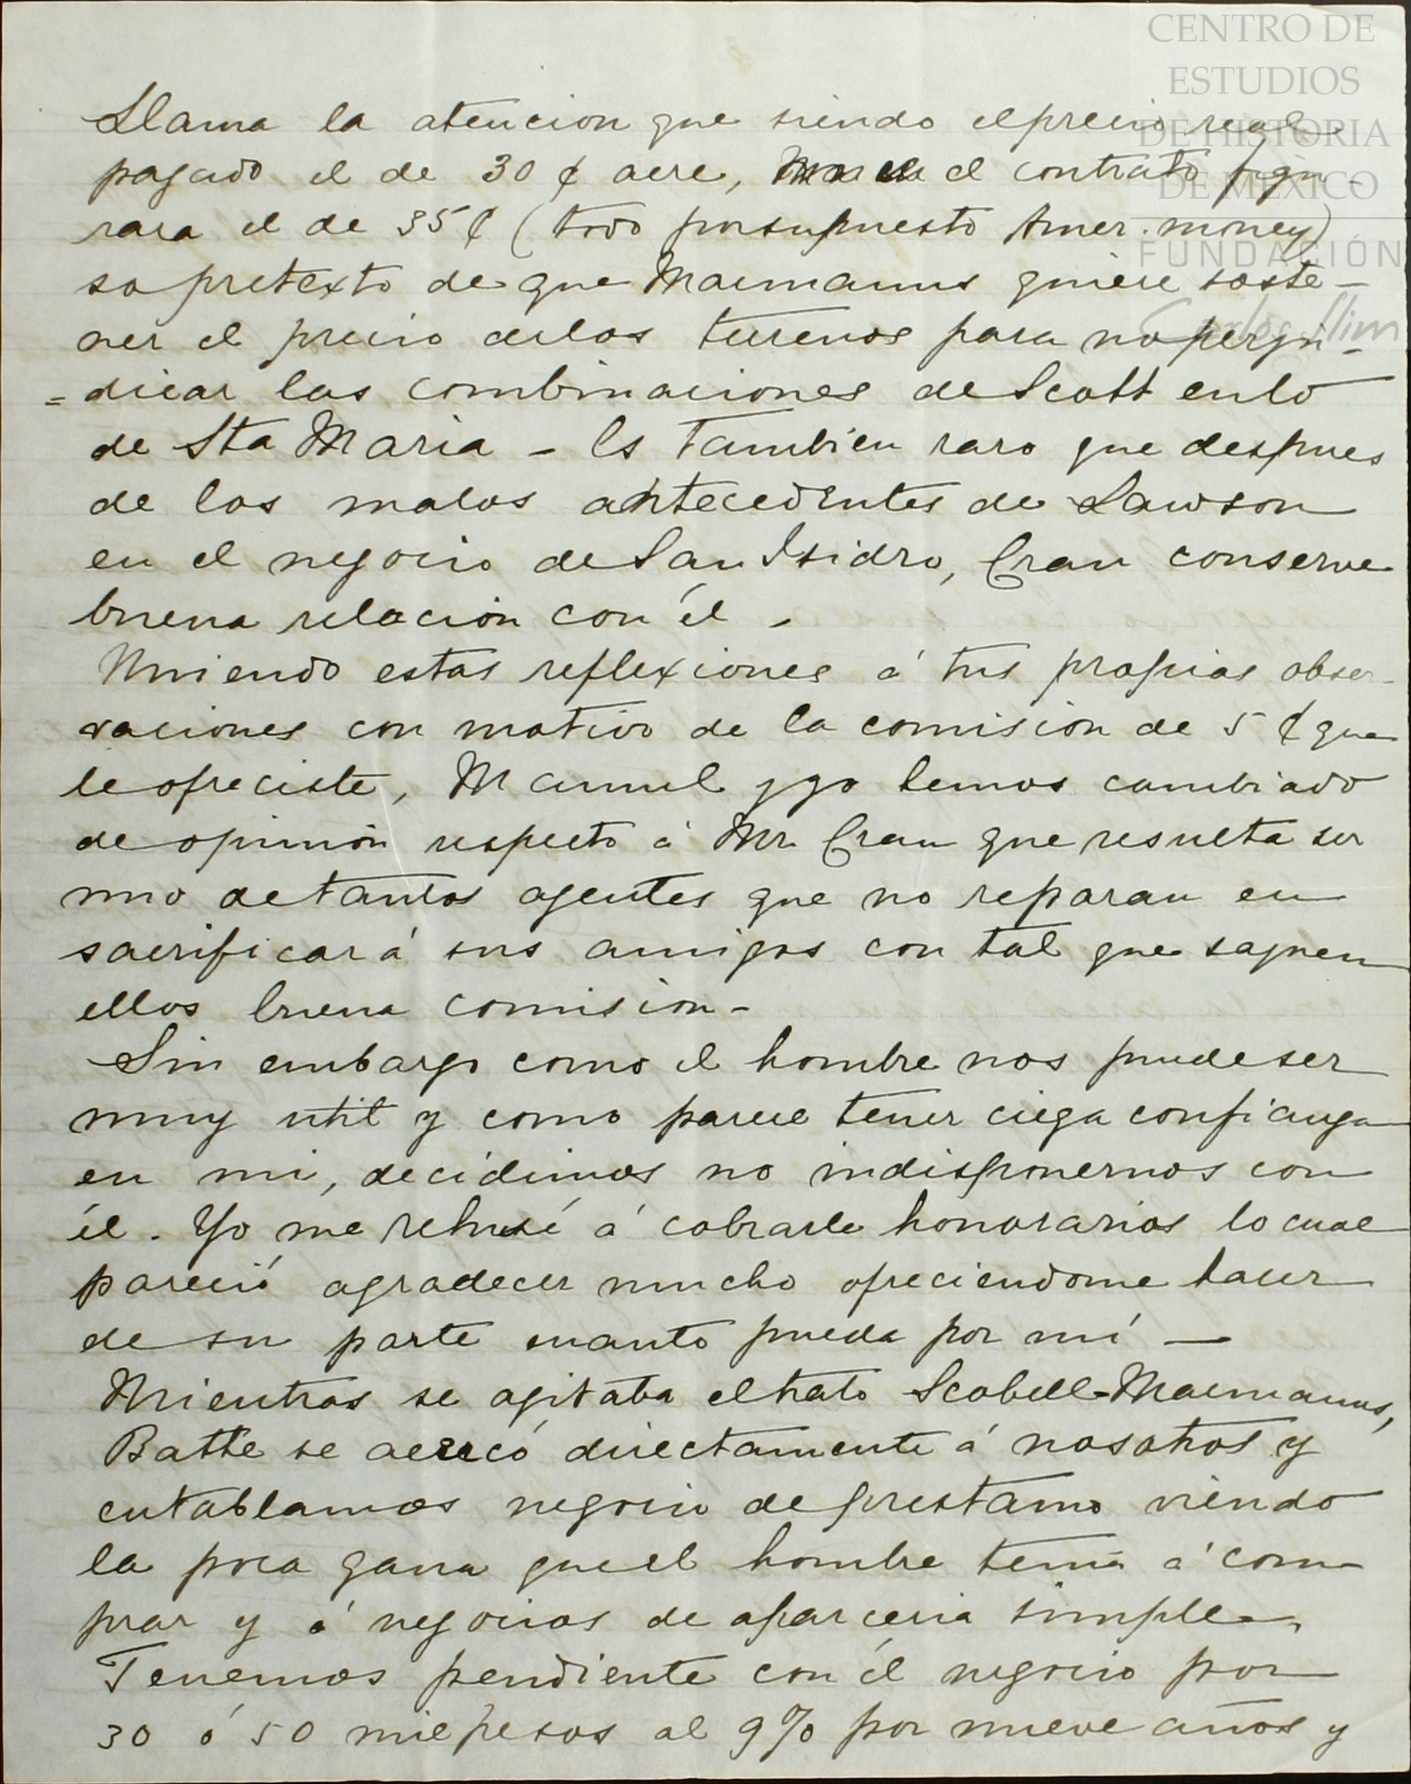 CENTRO DE
ESTUDIOS
DE HISTORIA
DE MEXICO
FUNDACIÓN
Carlos Slim
Llama la atencion que siendo el precio real
pagado el de 30 ¢ acre, en el contrato figu-
rara el de 35 ¢ (todo porsupuesto Amer. money)
so pretexto de que Macmanus quiere soste-
ner el precio de los terrenos para no perju-
=dicar las combinaciones de Scott en lo
de Sta Maria - Es tambien raro que despues
de los malos antecedentes de Lawson
en el negocio de San Isidro, Cran conserve
buena relación con él -
Uniendo estas reflexiones á tus propias obser-
vaciones con motivo de la comision de 5 ¢ que
le ofreciste, Manuel y yo hemos cambiado
de opinión respecto á Mr. Cran que resulta ser
uno de tantos agentes que no reparan en
sacrificar á sus amigos con tal que saquen
ellos buena comision -
Sin embargo como el hombre nos puede ser
muy util y como parece tener ciega confianza
en mi, decidimos no indisponernos con
él. Yo me rehusé á cobrarle honorarios lo cual
pareció agradecer mucho ofreciendome hacer
de su parte cuanto pueda por mí —
Mientras se agitaba el trato Scobell-Macmanus,
Batte se acercó directamente á nosotros y
entablamos negocio de prestamo viendo
la poca gana que el hombre tenia á com-
prar y á negocios de aparceria simple.
Tenemos pendiente con él negocio por
30 ó 50 mil pesos al 9% por nueve años y